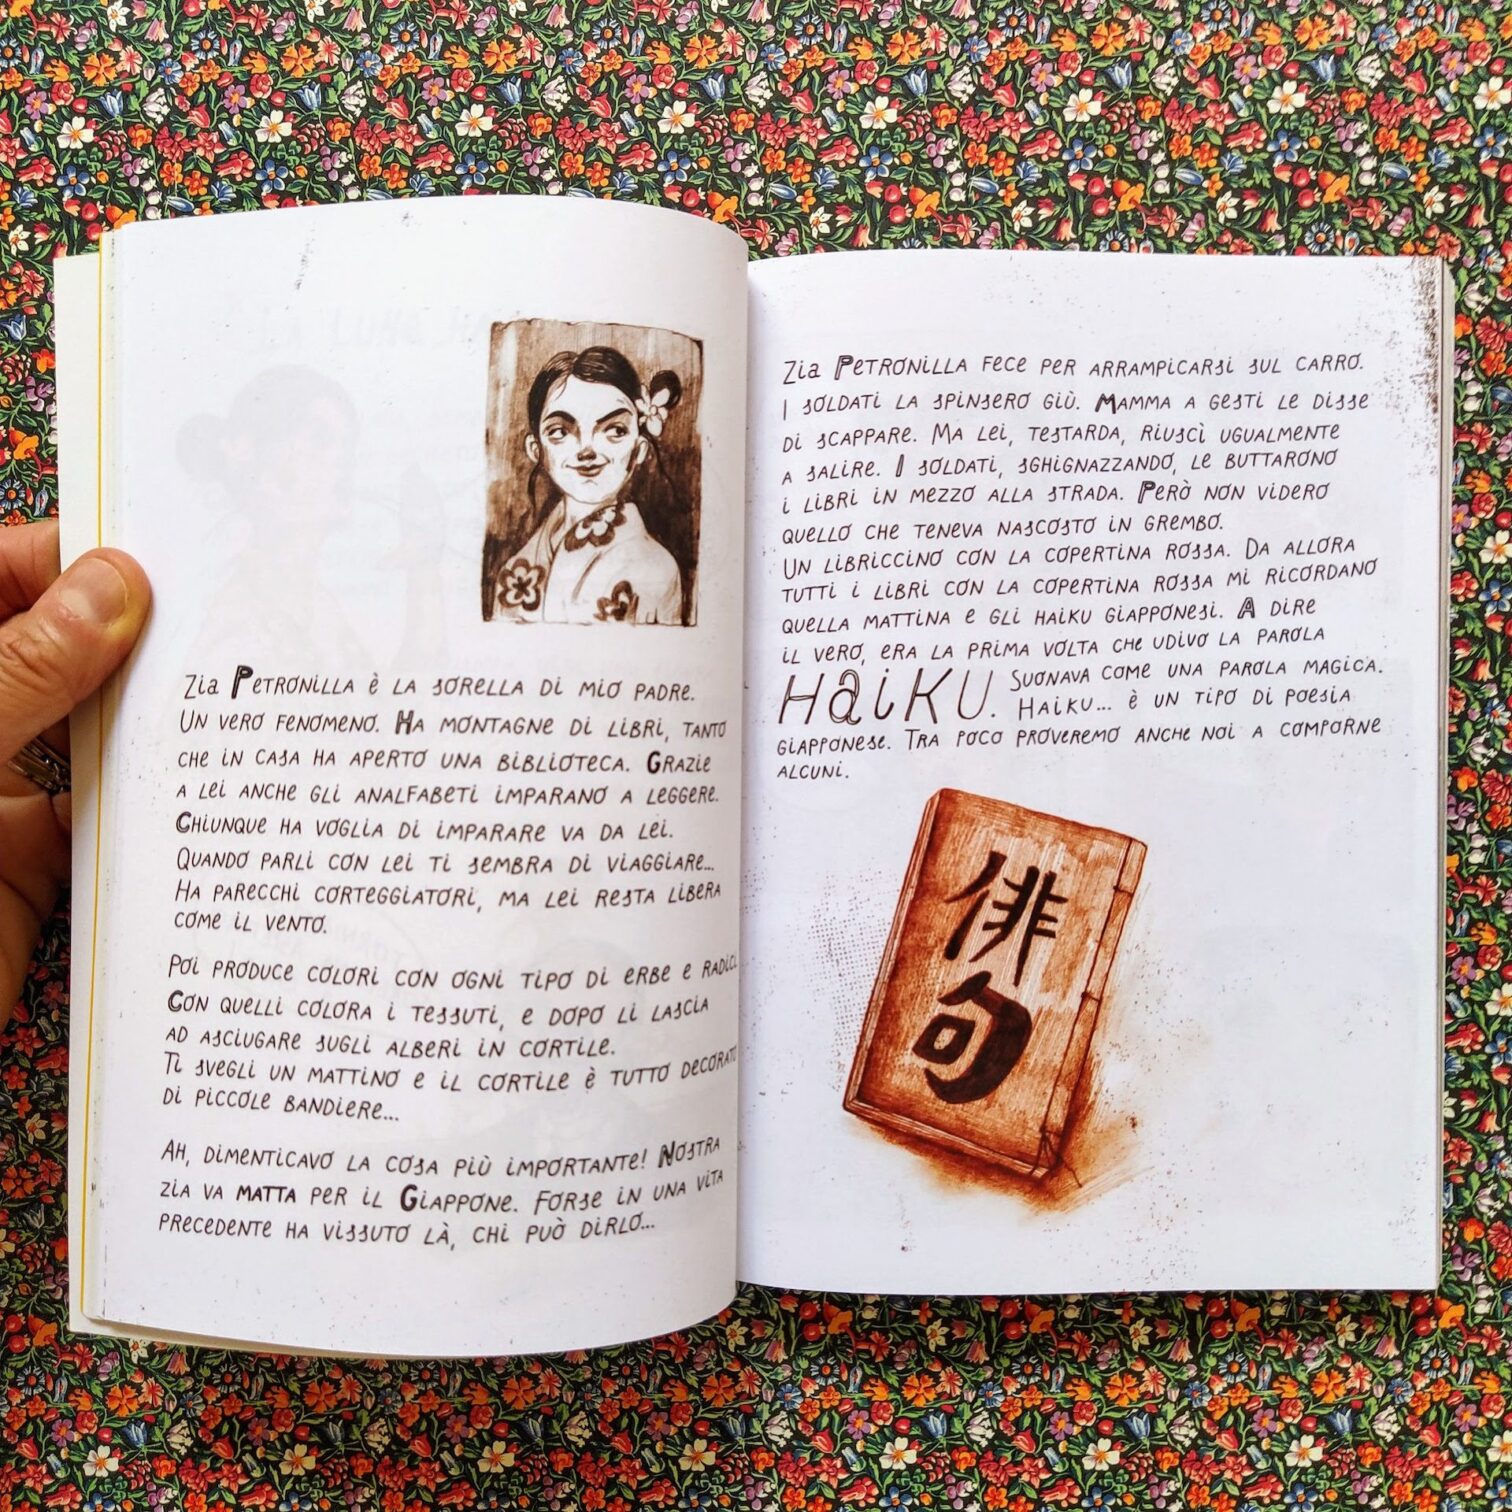 Zia Petronilla è la sorella di mio padre.
Un vero fenomeno. Ha montagne di libri, tanto
che in casa ha aperto una biblioteca. Grazie
a lei anche gli analfabeti imparano a leggere.
Chiunque ha voglia di imparare va da lei.
Quando parli con lei ti sembra di viaggiare...
Ha parecchi corteggiatori, ma lei resta libera
come il vento.
Poi produce colori con ogni tipo di erbe e radici.
Con quelli colora i tessuti, e dopo li lascia
ad asciugare sugli alberi in cortile.
Ti svegli un mattino e il cortile è tutto decorato
di piccole bandiere...
Ah, dimenticavo la cosa più importante! Nostra
zia va matta per il Giappone. Forse in una vita
precedente ha vissuto là, chi può dirlo...
Zia Petronilla fece per arrampicarsi sul carro.
I soldati la spinsero giù. Mamma a gesti le disse
di scappare. Ma lei, testarda, riuscì ugualmente
a salire. I soldati, sghignazzando, le buttarono
i libri in mezzo alla strada. Però non videro
quello che teneva nascosto in grembo.
Un libriccino con la copertina rossa. Da allora
tutti i libri con la copertina rossa mi ricordano
quella mattina e gli haiku giapponesi. A dire
il vero, era la prima volta che udivo la parola
HAIKU. Suonava come una parola magica.
Haiku... è un tipo di poesia
giapponese. Tra poco proveremo anche noi a comporne
alcuni.
俳句